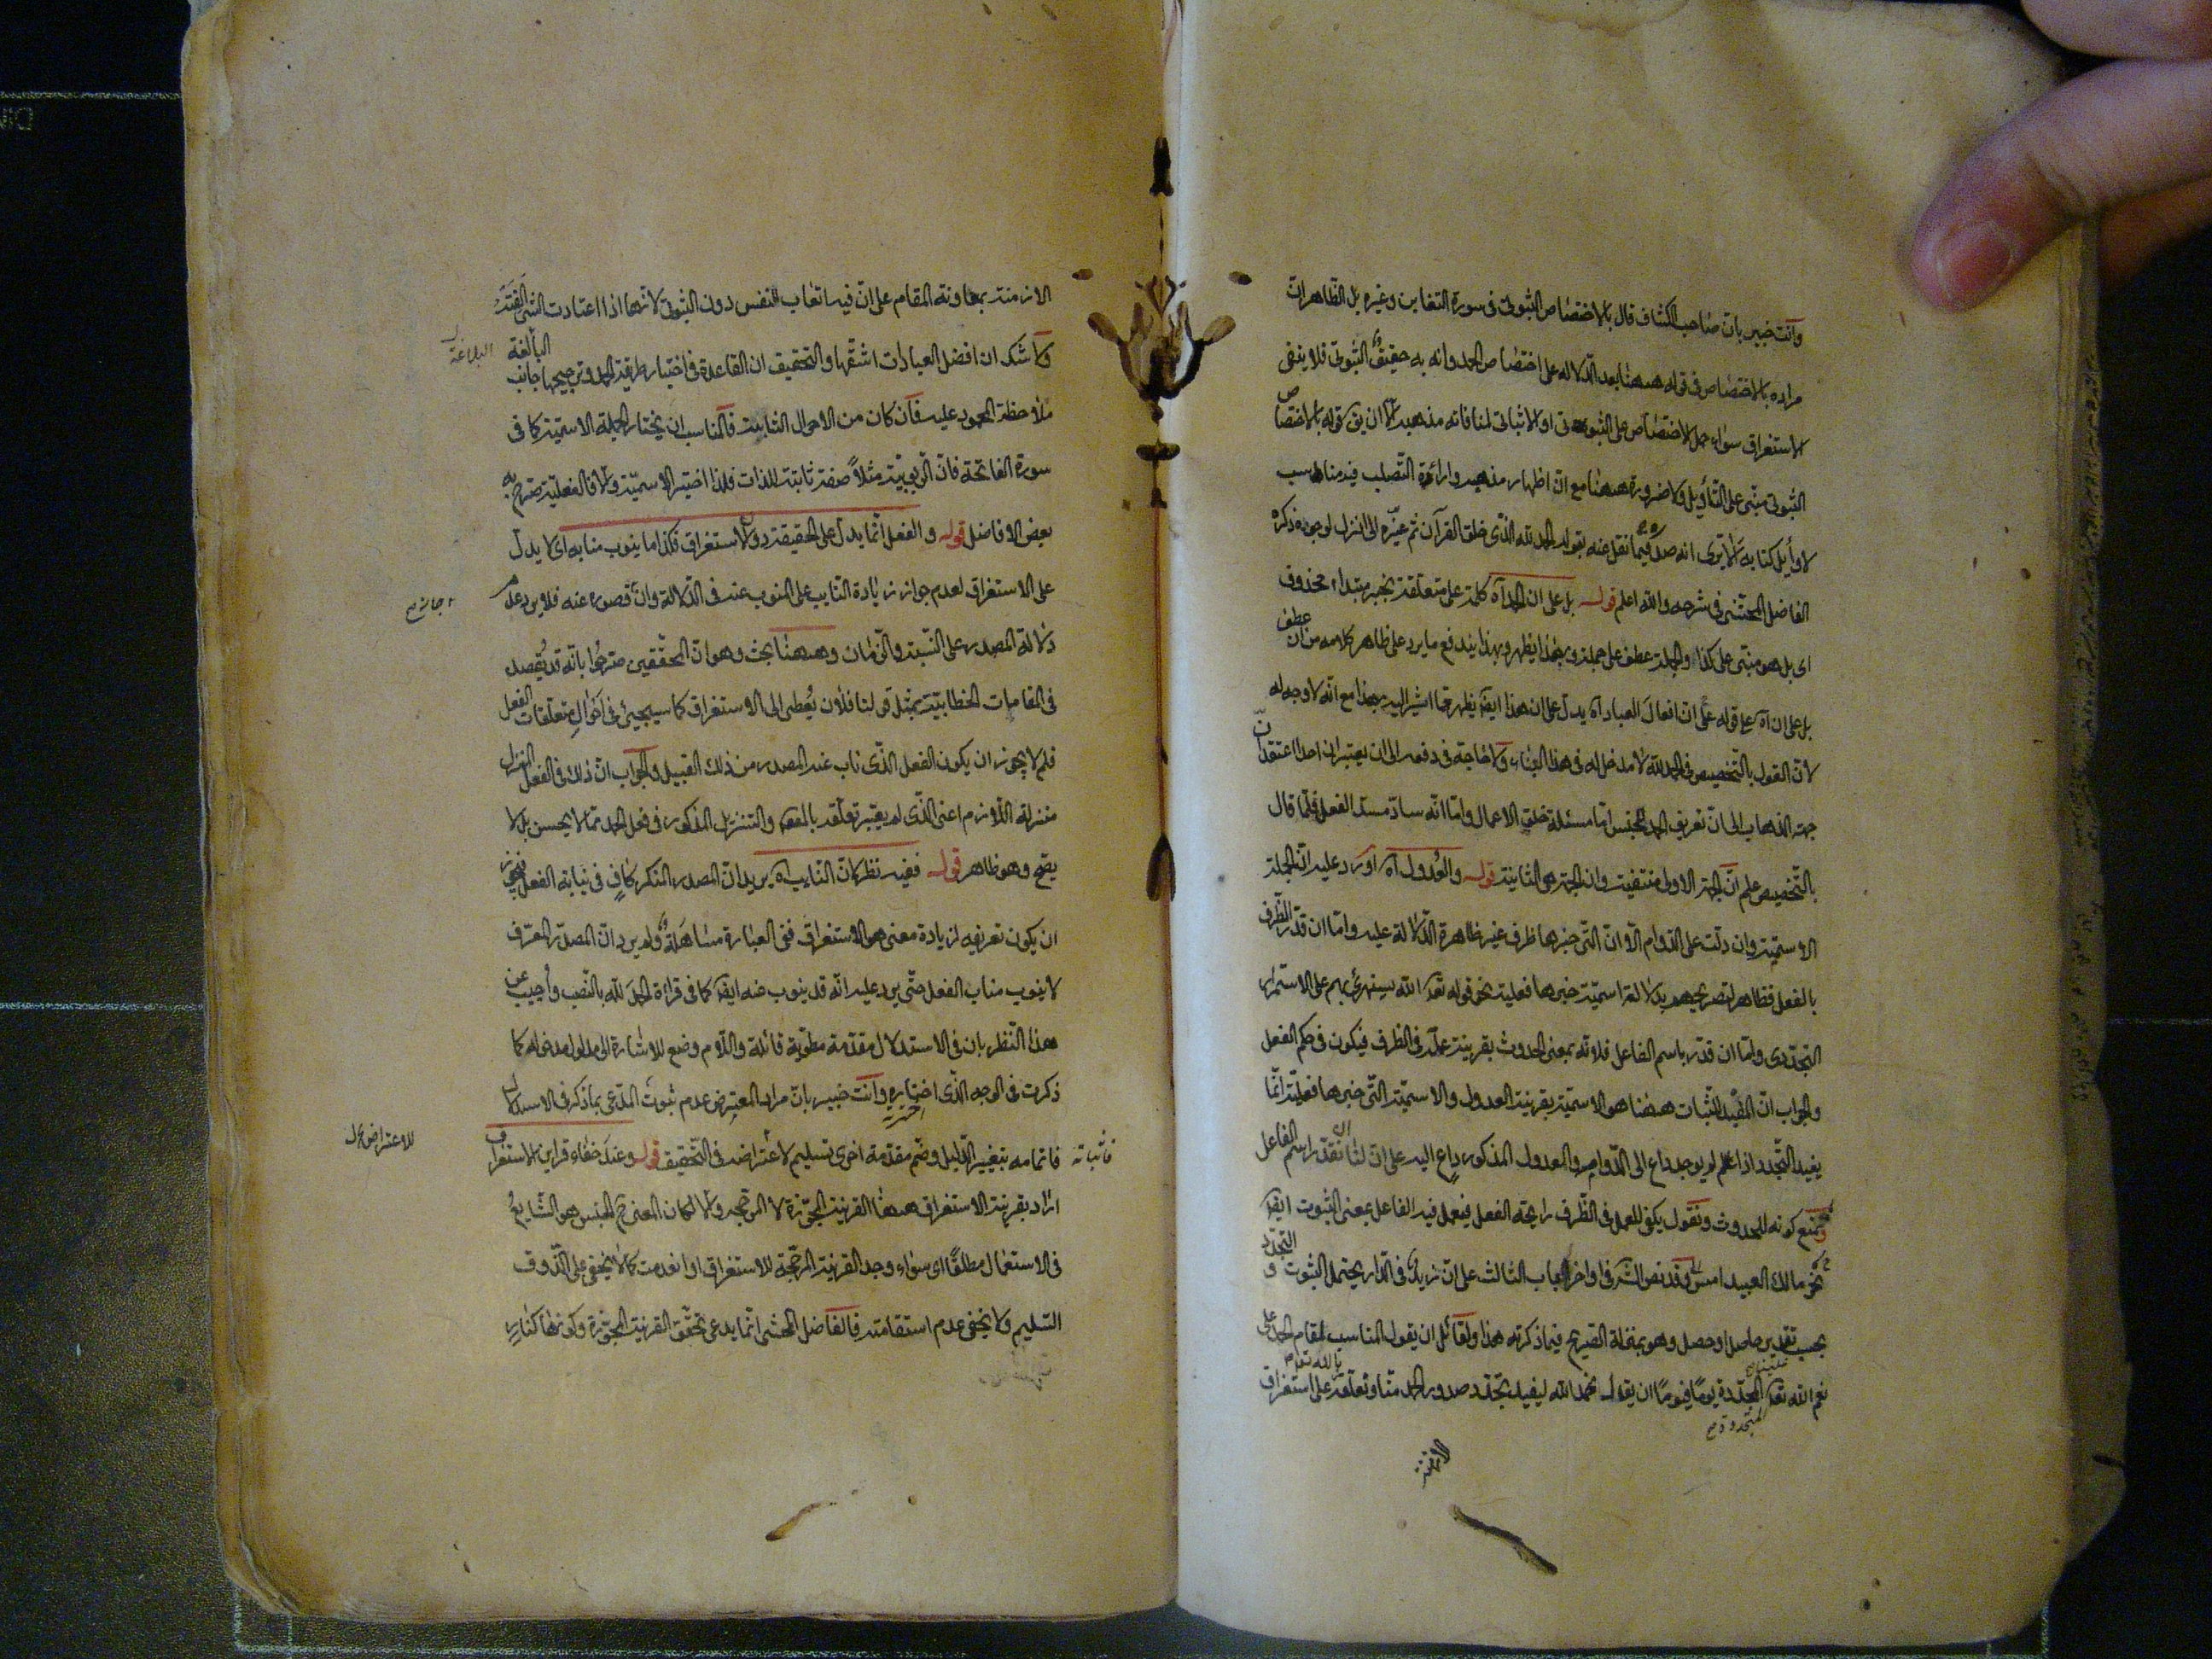 وانت خبير بان صاحب الكشاف قال بالاختصاص الثبوتى فى سورة التغابن وغيره بل الظاهر ان
مراده بالاختصاص فى قوله ههنا بعد الدلالة على اختصاص الحمد وانه به حقيق الثبوتى فلا ينفى
الاستغراق سواء حمل الاختصاص على الثبوتى او الاثباتى لمنافاته مذهبه الا ان يق قوله بالاختصاص
الثبوتى مبنى على التأويل ولا ضرورة ههنا مع ان اظهار مذهبه وارائة التصلب فيه مناسب
لاوايل كتابه الا يرى انه صدر فيما نقل عنه بقوله الحمد لله الذى خلق القرآن ثم غيره الى انزل لوجوه ذكره
الفاضل المحشى فى شرحه والله اعلم قوله بل على ان الحمد اه كلمة على متعلقة بخبر مبتداء محذوف
اى بل هو مبنى على كذا والجملة عطف على جملة وبهذا يظهر وبهذا يندفع ما يرد على ظاهر كلامه من ان عطف
بل على ان اه على قوله على ان افعال العباد اه يدل على ان هذا ايضا يظهر مما اشير اليه بهذا مع انه لا وجه له
لان القول بالتخصيص فى الحمد لله لا مدخل له فى هذا البناء ولا حاجة فى دفعه الى ان يعتبر ان احدا اعتقد ان
جهة الذهاب الى ان تعريف الحمد للجنس اما مسئلة خلق الاعمال واما انه ساد مسد الفعل فلما قال
بالتخصيص علم ان الجهة الاولى منتفية وان الجهة هى الثانية قوله والعدول اه اورد عليه ان الجملة
الاسمية وان دلت على الدوام الا ان التى خبرها ظرف غير ظاهرة الدلالة عليه واما ان قدر الظرف
بالفعل فظاهر لتصريحهم بدلالة اسمية خبرها فعلية نحو قوله تعه الله يستهزئ بهم على الاستمرار
التجددى واما ان قدر باسم الفاعل فلانه بمعنى الحدوث بقرينة عمله فى الظرف فيكون فى حكم الفعل
والجواب ان المفيد للثبات ههنا هو الاسمية بقرينة العدول والاسمية التى خبرها فعلية انما
يفيد التجدد اذا لم يوجد داع الى الدوام والعدول المذكور داع اليه على ان لنا ان نقدر اسم الفاعل
ونمنع كونه للحدوث ونقول يكفى للعمل فى الظرف رايحة الفعل فيعمل فيه الفاعل بمعنى الثبوت ايضا
نحو مالك العبيد امس وقد نص الش فى اواخر الباب الثالث على ان زيد فى الدار يحتمل الثبوت والتجدد
بحسب تقدير حاصل او حصل وهو بمنزلة الصريح فيما ذكرته هذا ولقائل ان يقول المناسب لمقام الحمد على
نعم الله تعه المجددة يوما فيوما ان يقول نحمد الله ليفيد تجدد صدور الحمد منا وتعلقه على استغراق
المتجددة
الازمنة
الازمنة بمعاونة المقام على ان فيه اتعاب النفس دون الثبوتى لانها اذا اعتادت الشئ الفته
ولا شك ان افضل العبادات اشقها والتحقيق ان القاعدة فى اختيار طريقة الحمد وترجيحها جانب البالغة
البلاغة
ملاحظة المحمود عليه فان كان من الاحوال الثابتة فالمناسب ان يختار الجملة الاسمية كما فى
سورة الفاتحة فان الربوبية مثلا صفة ثابتة للذات فلذا اختير الاسمية والا فالفعلية صرح به
بعض الافاضل قوله والفعل انما يدل على الحقيقة دون الاستغراق فكذا ما ينوب منابه اى لا يدل
على الاستغراق لعدم جواز زيادة النايب على المنوب عنه فى الدلالة وان قصوره عنه فلا يرد عدم
دلالة المصدر على النسبة والزمان وههنا بحث وهو ان المحققين صرحوا بانه قد يقصد
فى المقامات الخطابية بمثل قولنا فلان يعطى الى الاستغراق كما سيجيئ فى احوال متعلقات الفعل
فلم لا يجوز ان يكون الفعل الذى ناب عنه المصدر من ذلك القبيل والجواب ان ذلك فى الفعل المنزل
منزلة اللازم اعنى الذى لم يعتبر تعلقه بالمفعول والتنزيل المذكور فى فعل الحمد مما لا يحسن بل لا
يصح وهو ظاهر قوله ففيه نظر لان النايب اه يريد ان المصدر المنكر كاف فى نيابة الفعل فيجوز
ان يكون تعريفه لزيادة معنى هو الاستغراق ففى العبارة مساهلة ولم يرد ان المصدر المعرف
لا ينوب مناب الفعل حتى يرد عليه انه قد ينوب عنه ايضا كما فى قراءة الحمد لله بالنصب واجيب عن
هذا النظر بان فى الاستدلال مقدمة مطوية قائلة واللام وضع للاشارة الى مدلول مدخوله كما
ذكرت فى الوجه الذى اختاره وانت خبير بان مراد المعترض عدم ثبوت المدعى بما ذكر فى الاستدلال
فاثباته
فاتمامه بتغيير الدليل وضم مقدمة اخرى تسليم لاعتراضه فى التحقيق قوله وعند خفاء قراين الاستغراق
للاعتراض
اراد بقرينة الاستغراق ههنا القرينة المجوزة لا المرجحة والا لكان المعنى ح الجنس هو الشايع
فى الاستعمال مطلقا اى سواء وجد القرينة المرجحة للاستغراق او انعدمت كما لا يخفى على الذوق
السليم ولا يخفى عدم استقامته فالفاضل المحشى انما يدعى تحقق القرينة المجوزة وكونها كنار